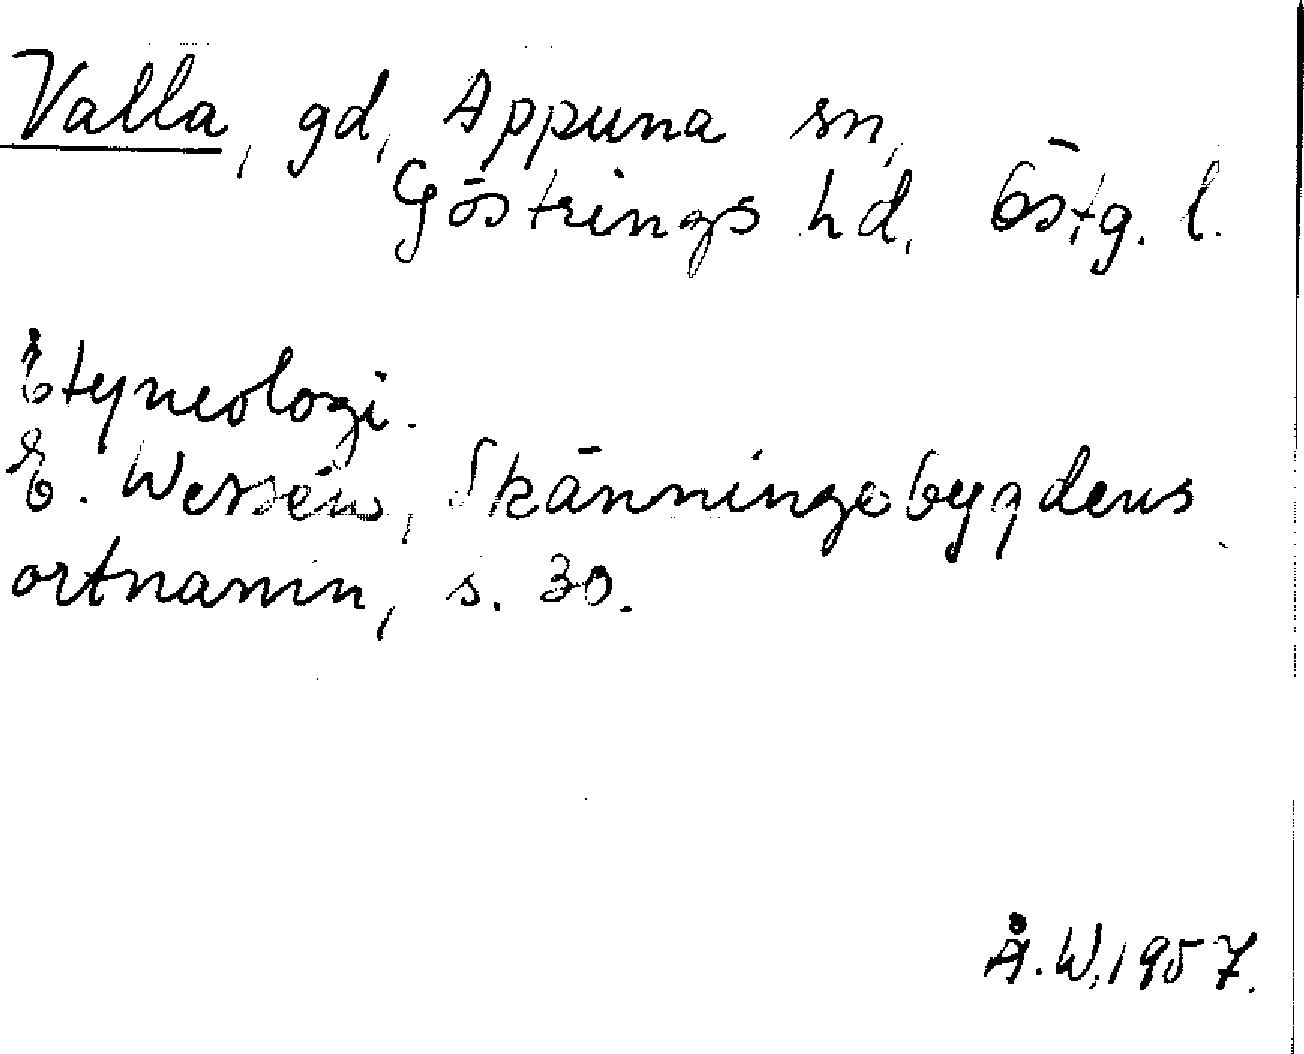 Valla, gd, Appuna sn,
Göstrings hd, Östg. l.
Etymologi.
E. Wessén, Skänningebygdens
ortnamn, s. 30.
Å. W. 1957.